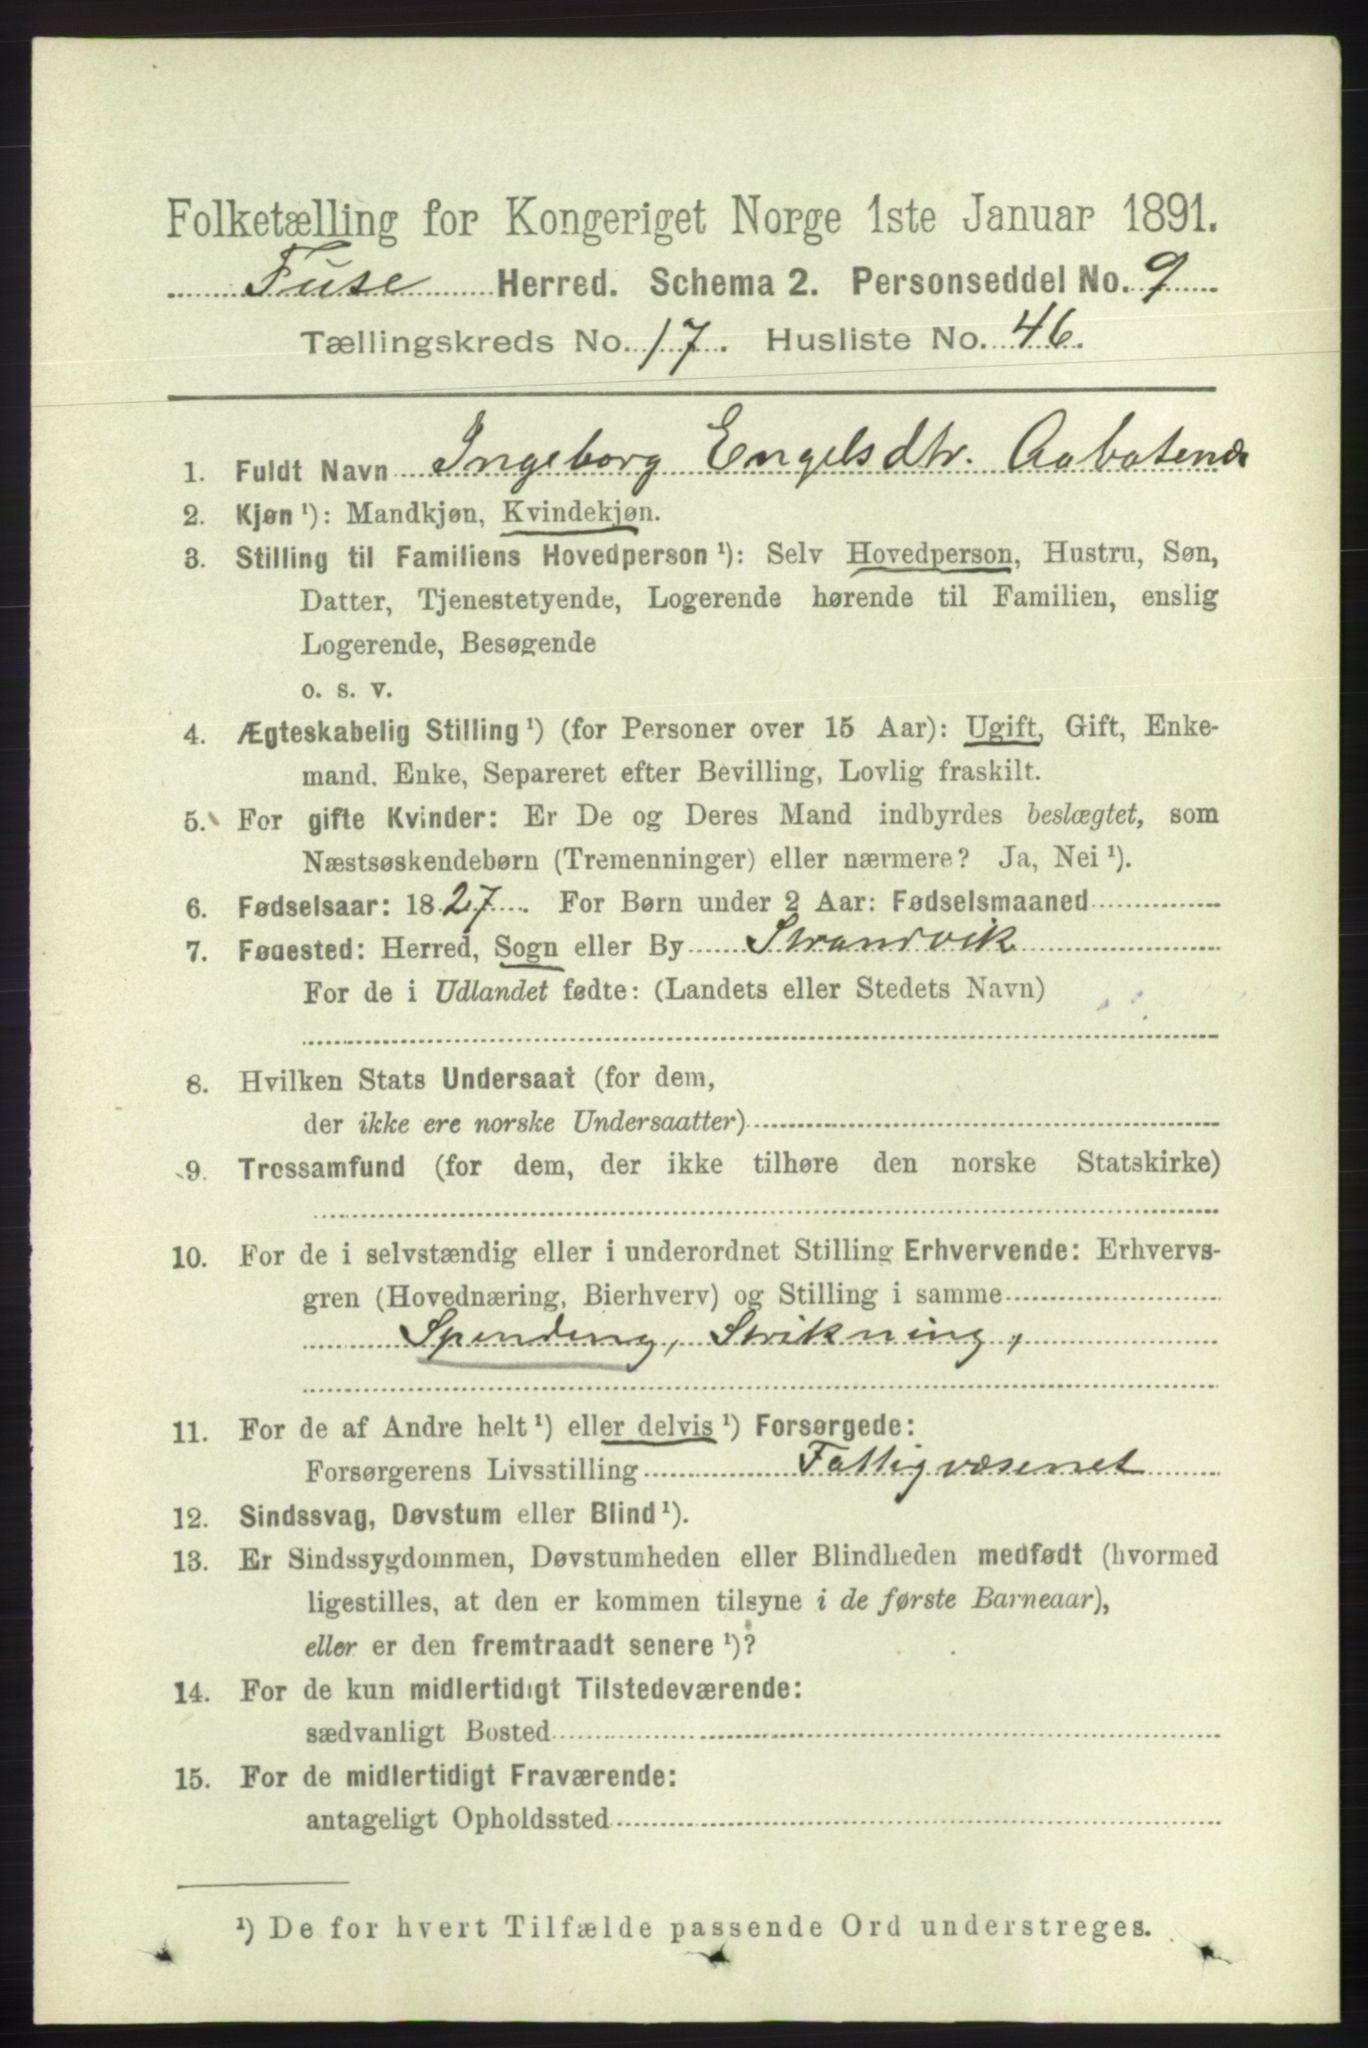 Folketælling for Kongeriget Norge 1ste Januar 1891.
Fuse Herred. Schema 2. Personseddel No. 9
Tællingskreds No. 17. Husliste No. 46.
1. Fuldt Navn Ingeborg Engelsdtr.
2. Kjøn ¹): Mandkjøn, Kvindekjøn.
3. Stilling til Familiens Hovedperson ¹): Selv Hovedperson, Hustru, Søn,
Datter, Tjenestetyende, Logerende hørende til Familien, enslig
Logerende, Besøgende
o. s. v.
4. Ægteskabelig Stilling ¹) (for Personer over 15 Aar): Ugift, Gift, Enke-
mand, Enke, Separeret efter Bevilling, Lovlig fraskilt.
5. For gifte Kvinder: Er De og Deres Mand indbyrdes beslægtet, som
Næstsøskendebørn (Tremenninger) eller nærmere? Ja, Nei ¹).
6. Fødselsaar: 1827. For Børn under 2 Aar: Fødselsmaaned
7. Fødested: Herred, Sogn eller By Strandvik
For de i Udlandet fødte: (Landets eller Stedets Navn)
8. Hvilken Stats Undersaat (for dem,
der ikke ere norske Undersaatter)
9. Trossamfund (for dem, der ikke tilhøre den norske Statskirke)
10. For de i selvstændig eller i underordnet Stilling Erhvervende: Erhvervs-
gren (Hovednæring, Bierhverv) og Stilling i samme
Spinding, Strikning,
11. For de af Andre helt ¹) eller delvis ¹) Forsørgede:
Forsørgerens Livsstilling Fattigvæsenet
12. Sindssvag, Døvstum eller Blind ¹).
13. Er Sindssygdommen, Døvstumheden eller Blindheden medfødt (hvormed
ligestilles, at den er kommen tilsyne i de første Barneaar),
eller er den fremtraadt senere ¹)?
14. For de kun midlertidigt Tilstedeværende:
sædvanligt Bosted
15. For de midlertidigt Fraværende:
antageligt Opholdssted
¹) De for hvert Tilfælde passende Ord understreges.